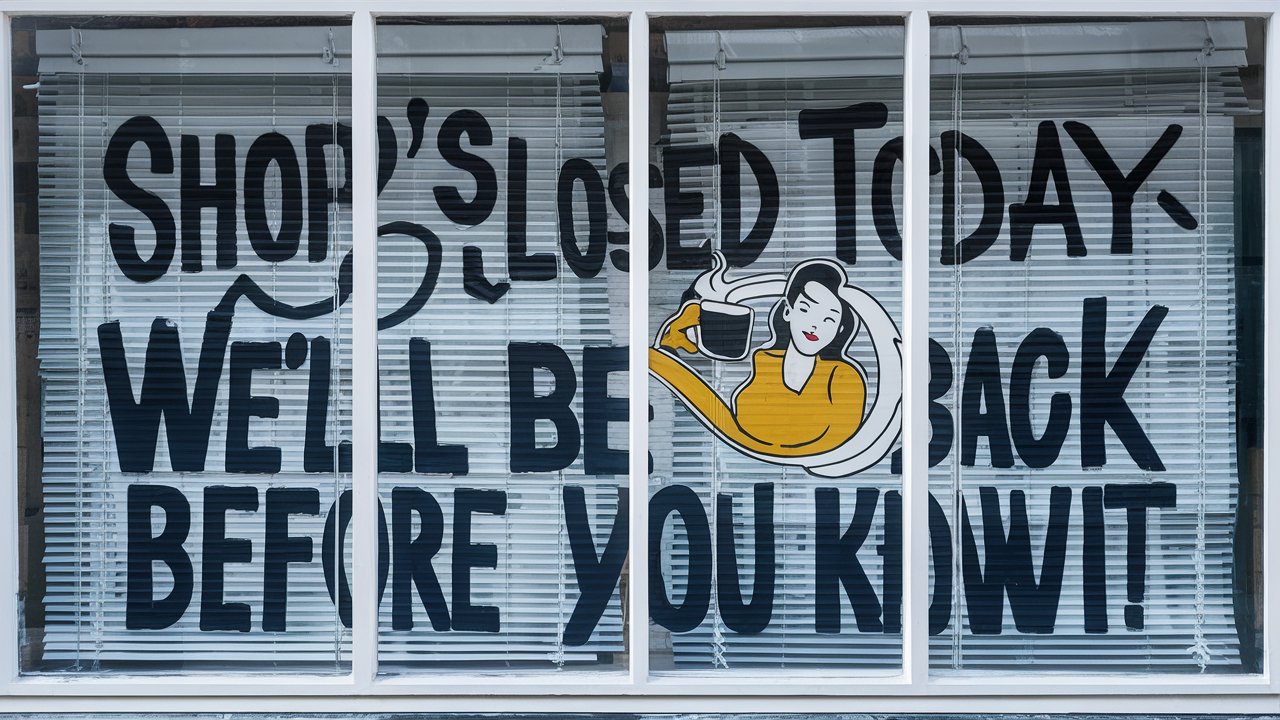 SHOP'S LOSED TODAY
WE'LL BE BACK
BEFORE YOU KNOWIT!